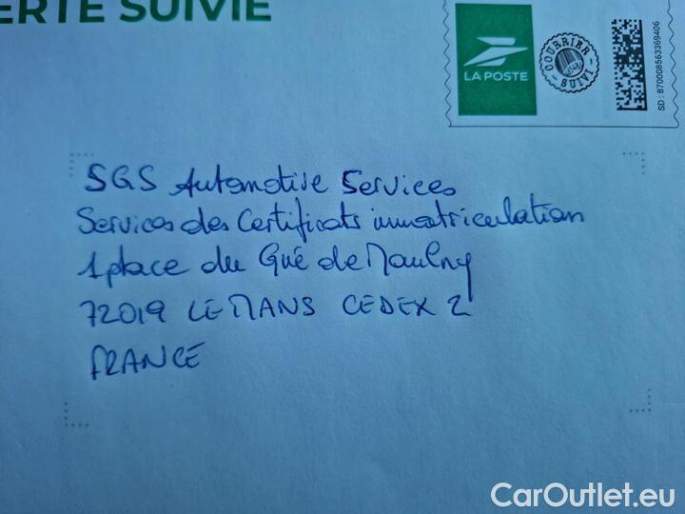 ERTE SUIVIE
LA POSTE
COURRIER SUIVI
SD : 87000856336940G
SGS Automotive Services
Services des Certificats immatriculation
1 place du Gué de Maulny
72019 LE MANS CEDEX 2
FRANCE
CarOutlet.eu